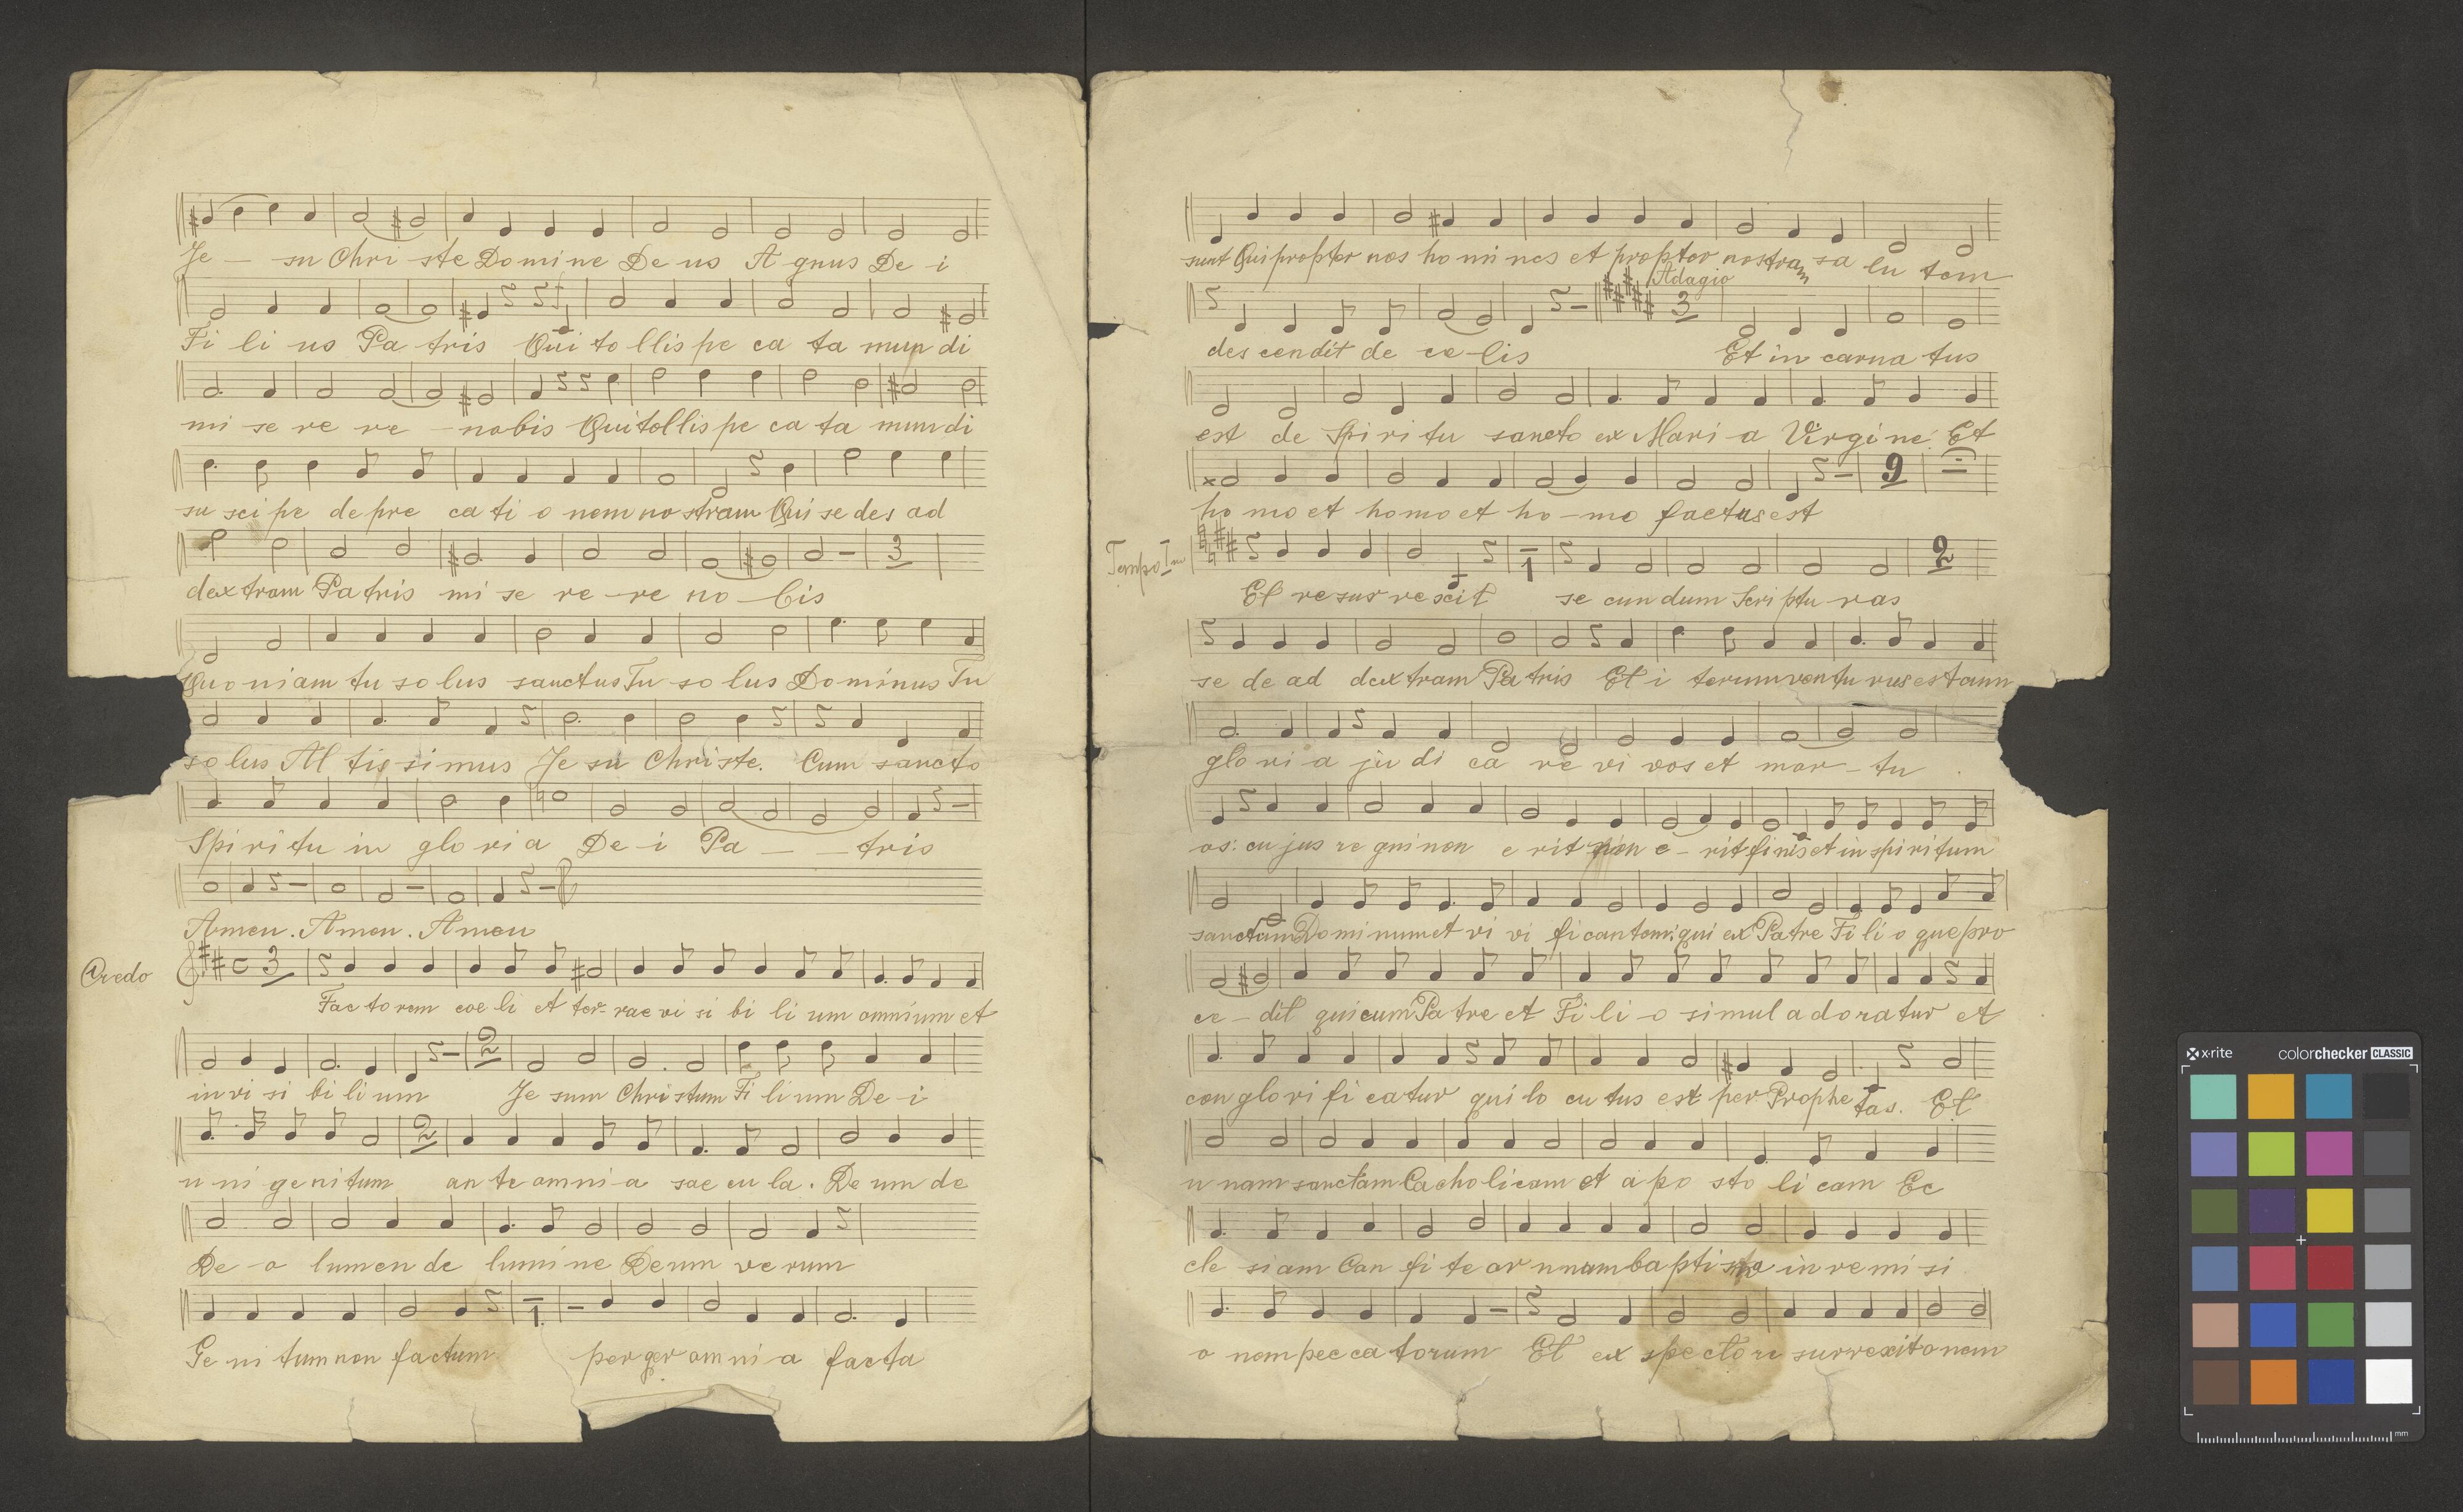 Je - su Chri ste Do mi ne De us A gnus De i
Fi li us Pa tris Qui to llis pe ca ta mun di
mi se re re - nobis Qui tollis pe ca ta mundi
su sci pe de pre ca ti o nem nostram Qui se des ad
dextram Pa tris mi se re - re no - bis
3
Quoniam tu so lus sanctus Tu so lus Dominus Tu
solus Al tis simus Je su Christe. Cum sancto
Spi ri tu in glo ri a De - i Pa - - tris
Amen. Amen. Amen
Credo
C 3
Fac to rem coe li et ter- rae vi si bi li um omnium et
2
in vi si bi li um Je sum Chri stum Fi li um De - i
2
u ni ge ni tum an te omni - a sae cu la. De um de
De - o lumen de lumi ne Deum ve rum
1.
Ge ni tum non factum per per om ni a facta
sunt Qui propter nos ho mi nes et propter nostram sa lu tem
Adagio
3
des cendit de ce - lis Et in carna tus
est de Spi ri tu sancto ex Mari - a Virgi ne Et
9
ho mo et homo et ho - mo factus est
Tempo Im
1 2
Et resur rexit se cun dum Scri ptu ras
se de ad dextram Pa tris Et i terum ven tu rus est cum
glo ri - a ju di ca re vi vos et mor - tu
os: cu jus re gni non e rit non e - rit finis et in spi ri tum
sanctum Dominum et vi vi fi cantem: qui ex Patre Fi li o que pro
ce - dit qui cum Pa tre et Fi li - o simul adoratur et
con glo ri fi catur qui lo cu tus est per Prophe tas. Et
u nam sanctam Cacholicam et a po sto li cam Ec
cle siam Con fi te or unum baptisma in re mi si
o nem pec ca torum Et ex specto re surrexitonem
x-rite colorchecker CLASSIC
mm